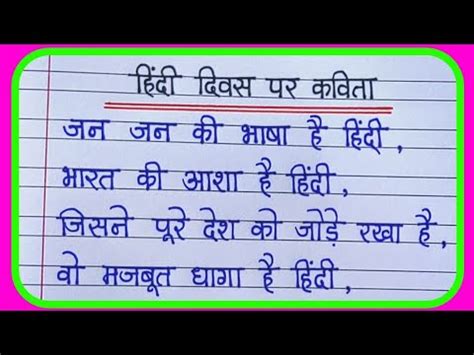 हिंदी दिवस पर कविता
जन जन की भाषा है हिंदी,
भारत की आशा है हिंदी,
जिसने पूरे देश को जोड़े रखा है,
वो मजबूत धागा है हिंदी,